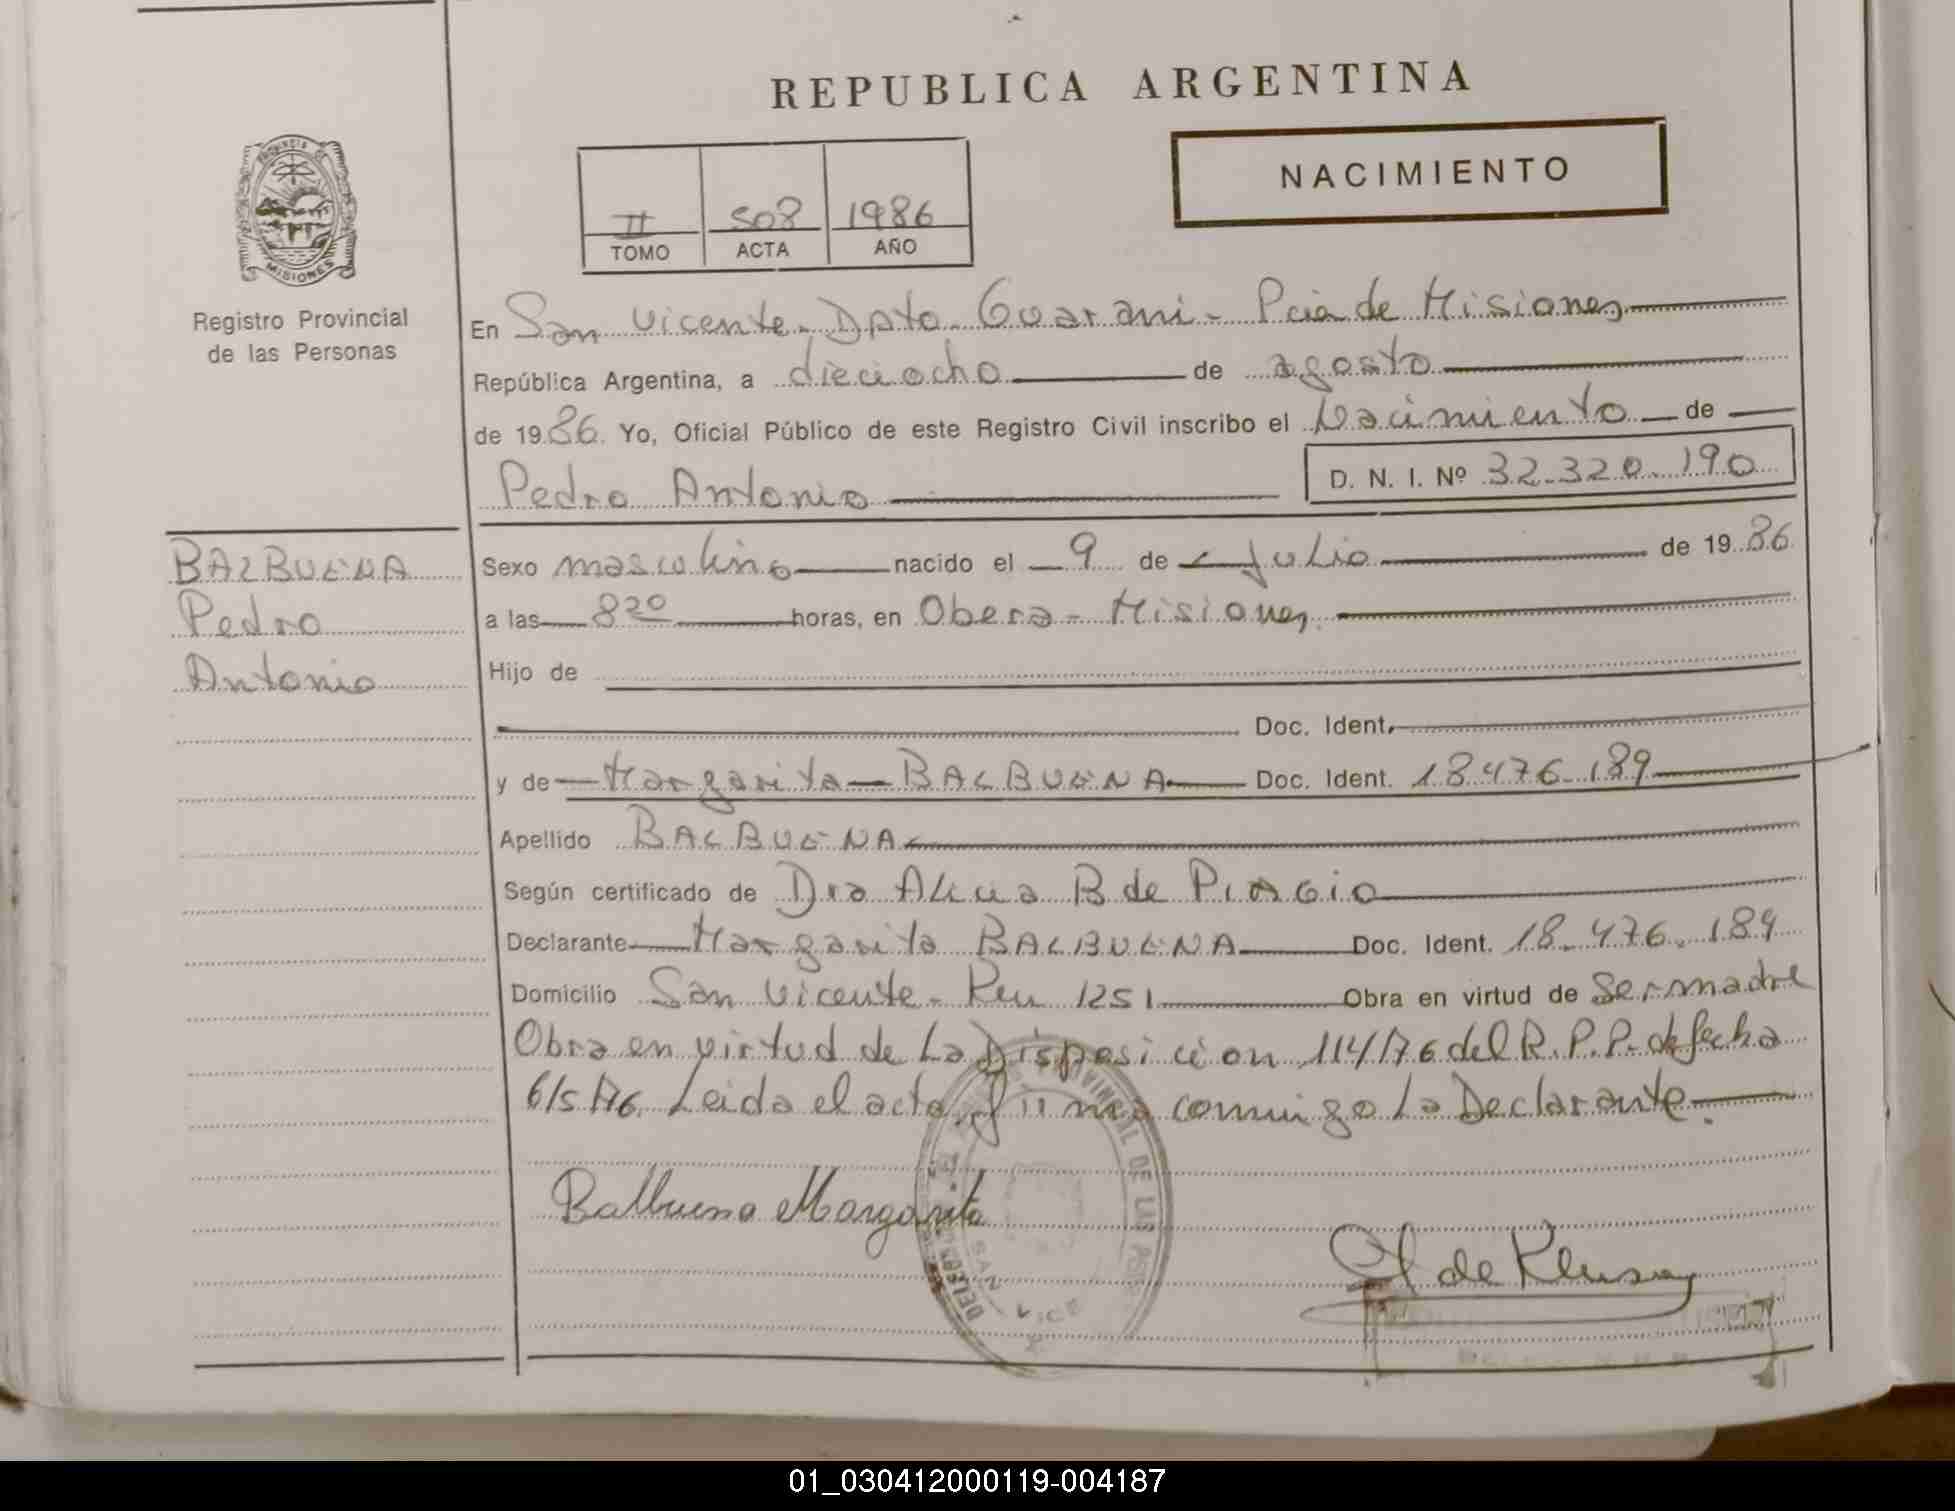 REPUBLICA ARGENTINA
NACIMIENTO
II 508 1986
TOMO ACTA AÑO
PROVINCIA DE
MISIONES
Registro Provincial
de las Personas
En San Vicente - Dpto Guarani - Pcia de Misiones
República Argentina, a dieciocho de agosto
de 1986. Yo, Oficial Público de este Registro Civil inscribo el Nacimiento de
Pedro Antonio D. N. I. Nº 32.320.190
BALBUENA
Pedro
Antonio
Sexo masculino nacido el 9 de Julio de 1986
a las 820 horas, en Obera - Misiones
Hijo de
Doc. Ident.
y de Margarita BALBUENA Doc. Ident. 18.476.189
Apellido BALBUENA
Según certificado de Dra Alicia B de
Declarante Margarita BALBUENA Doc. Ident. 18.476.189
Domicilio San Vicente - 1251 Obra en virtud de Ser madre
Obra en virtud de La Disposición 114/76 del R.P.P. de fecha
6/5/76. Leida el acta firma conmigo La Declarante.
Balbuena Margarita
de
SAN VICE
01_030412000119-004187